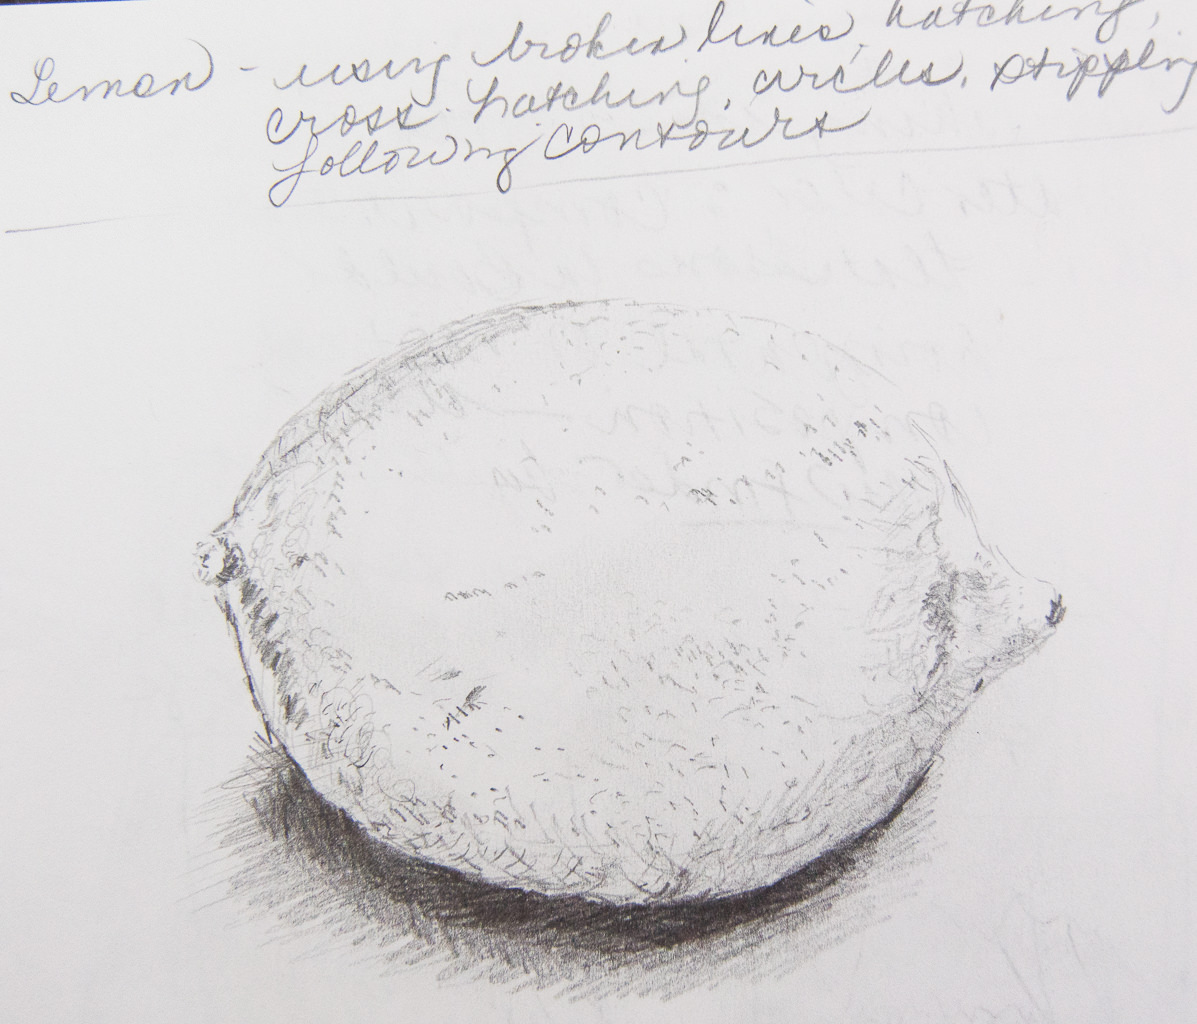 Lemon - using broken lines, hatching,
cross-hatching, circles, stippling
following contours